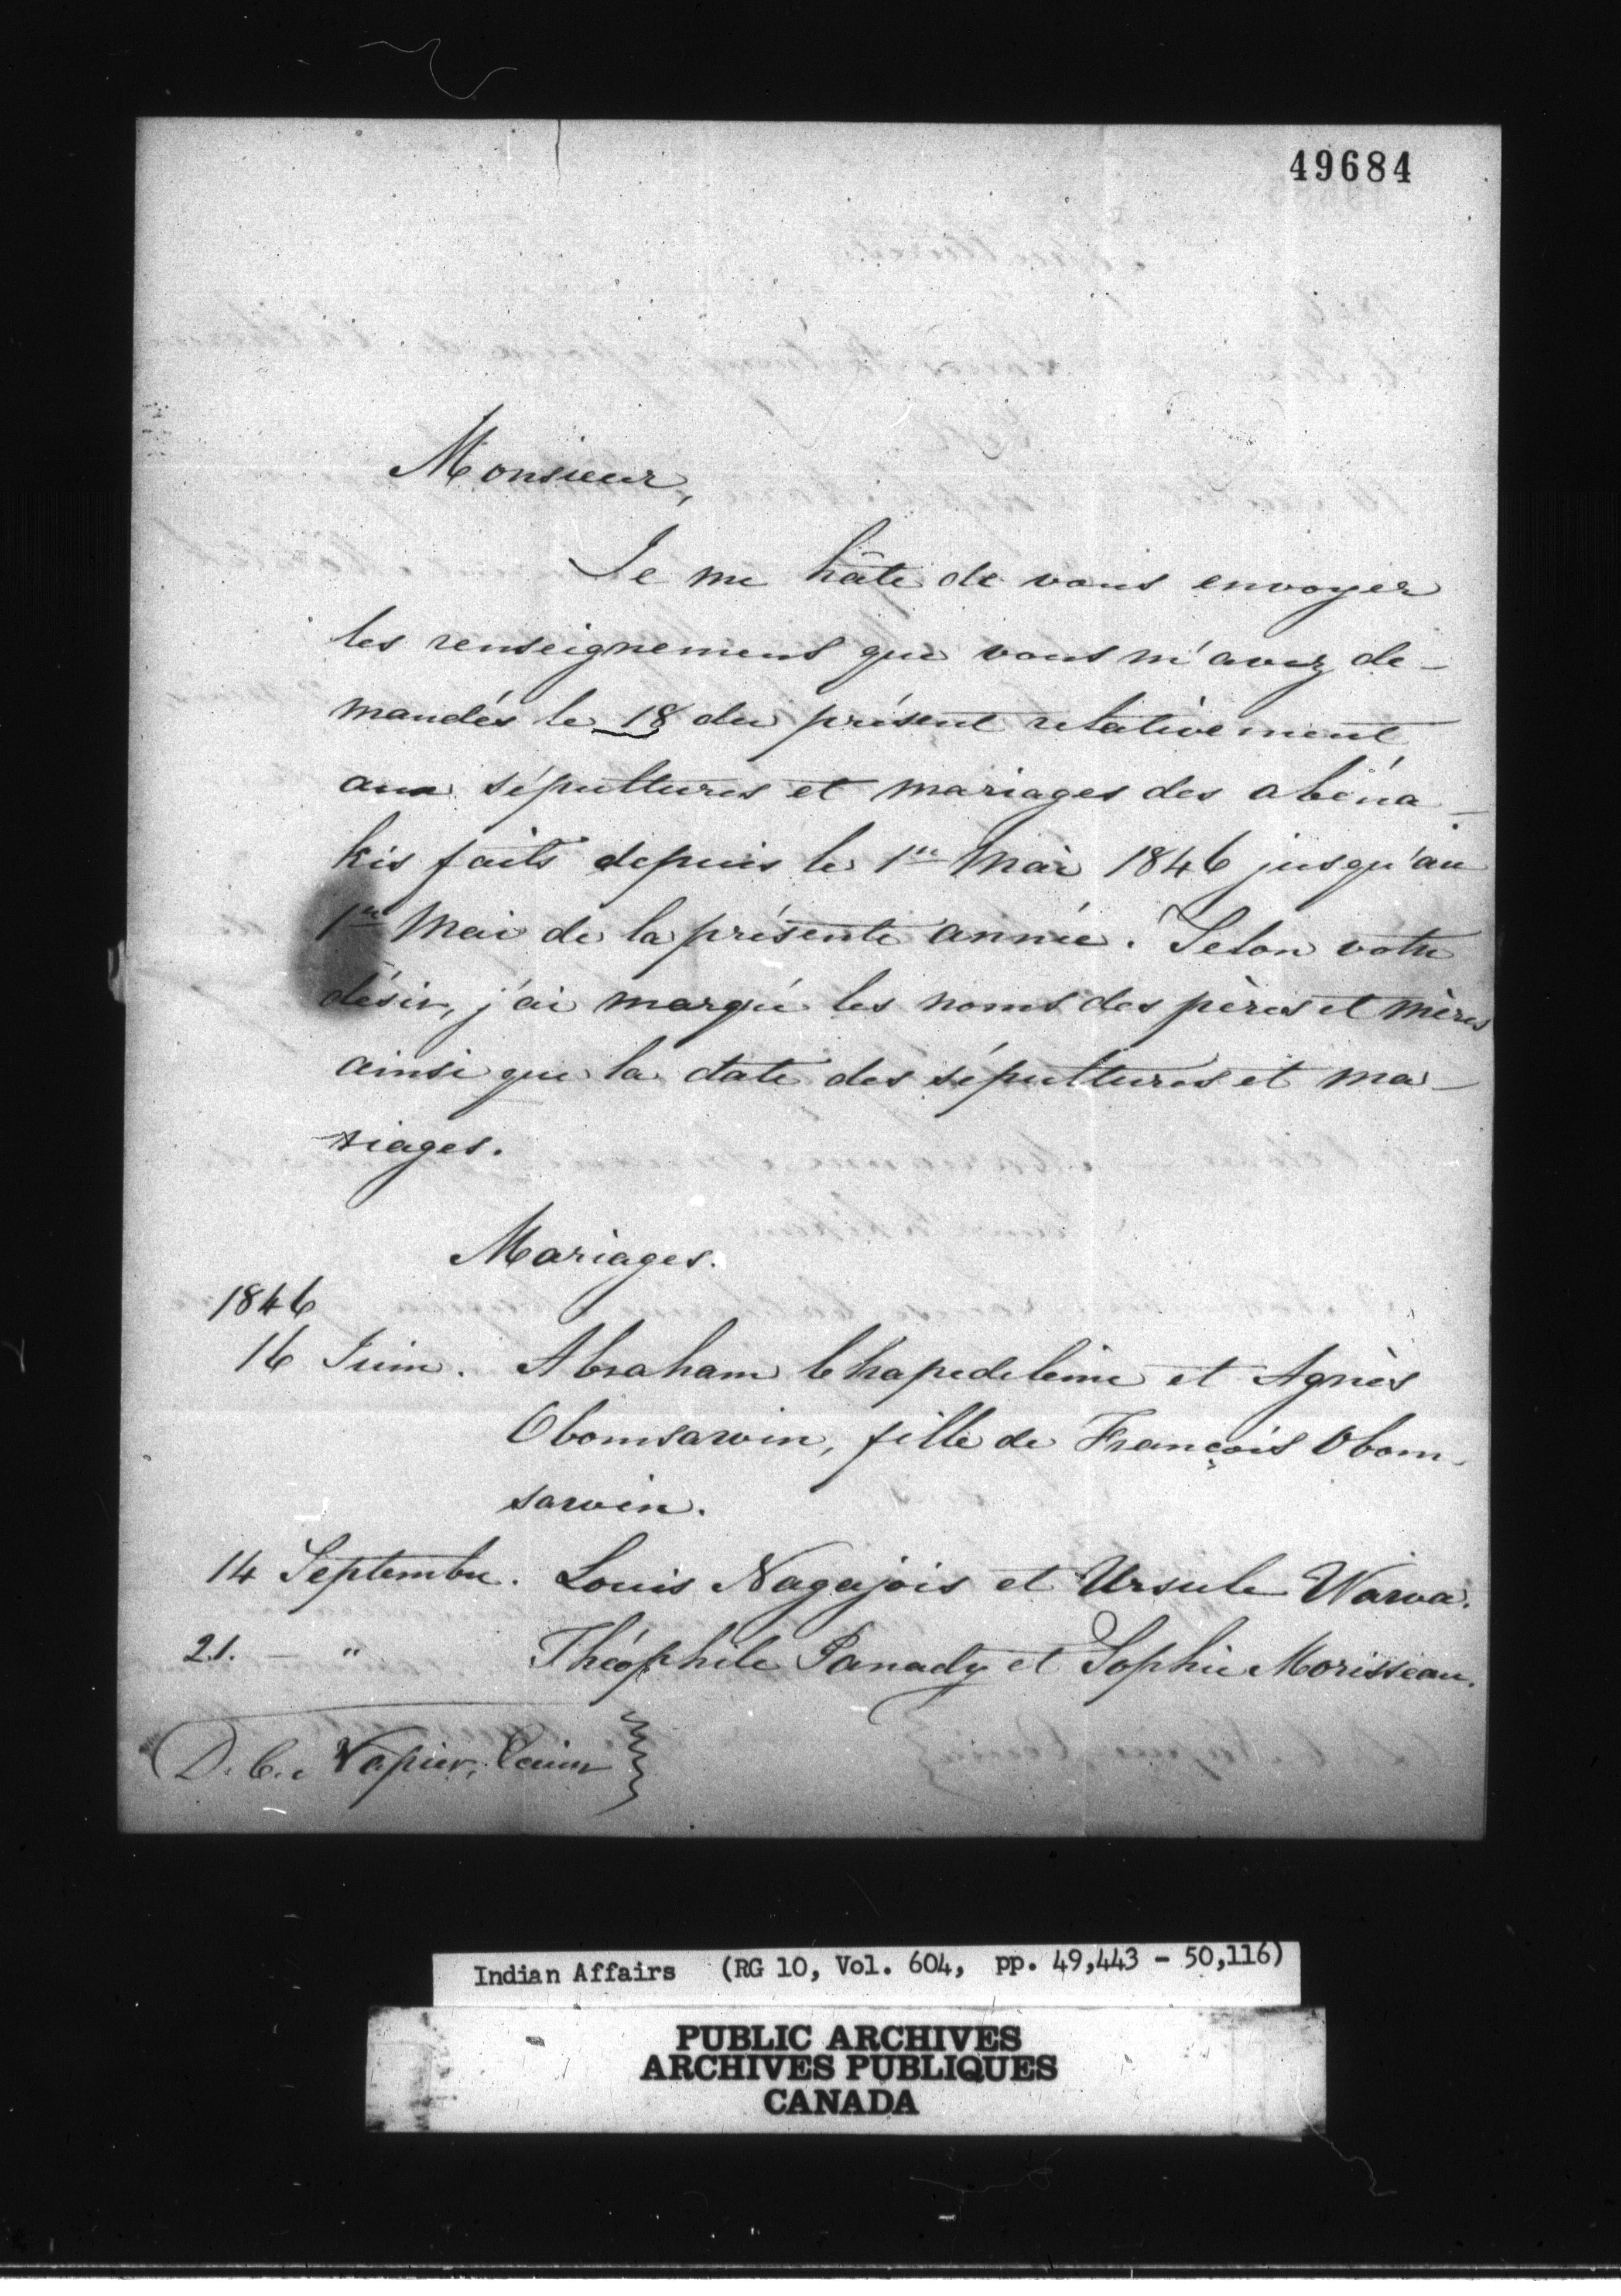 49684
Monsieur,
Je me hâte de vous envoyer
les renseignements que vous m'avez de-
mandés le 18 du présent relativement
aux sépultures et mariages des abéna-
kis faits depuis le 1er Mai 1846 jusqu'au
1er Mai de la présente année. Selon votre
désir, j'ai marqué les noms des pères et mères
ainsi que la date des sépultures et ma-
riages.
Mariages.
1846
16 Juin. Abraham Chapedeleine et Agnès
Obomsawin, fille de François Obom-
sawin.
14 Septembre. Louis Nagajois et Ursule Wawa.
21. — " Théophile Panady et Sophie Morisseau.
D. C. Napier,
Indian Affairs (RG 10, Vol. 604, pp. 49,443 - 50,116)
PUBLIC ARCHIVES
ARCHIVES PUBLIQUES
CANADA